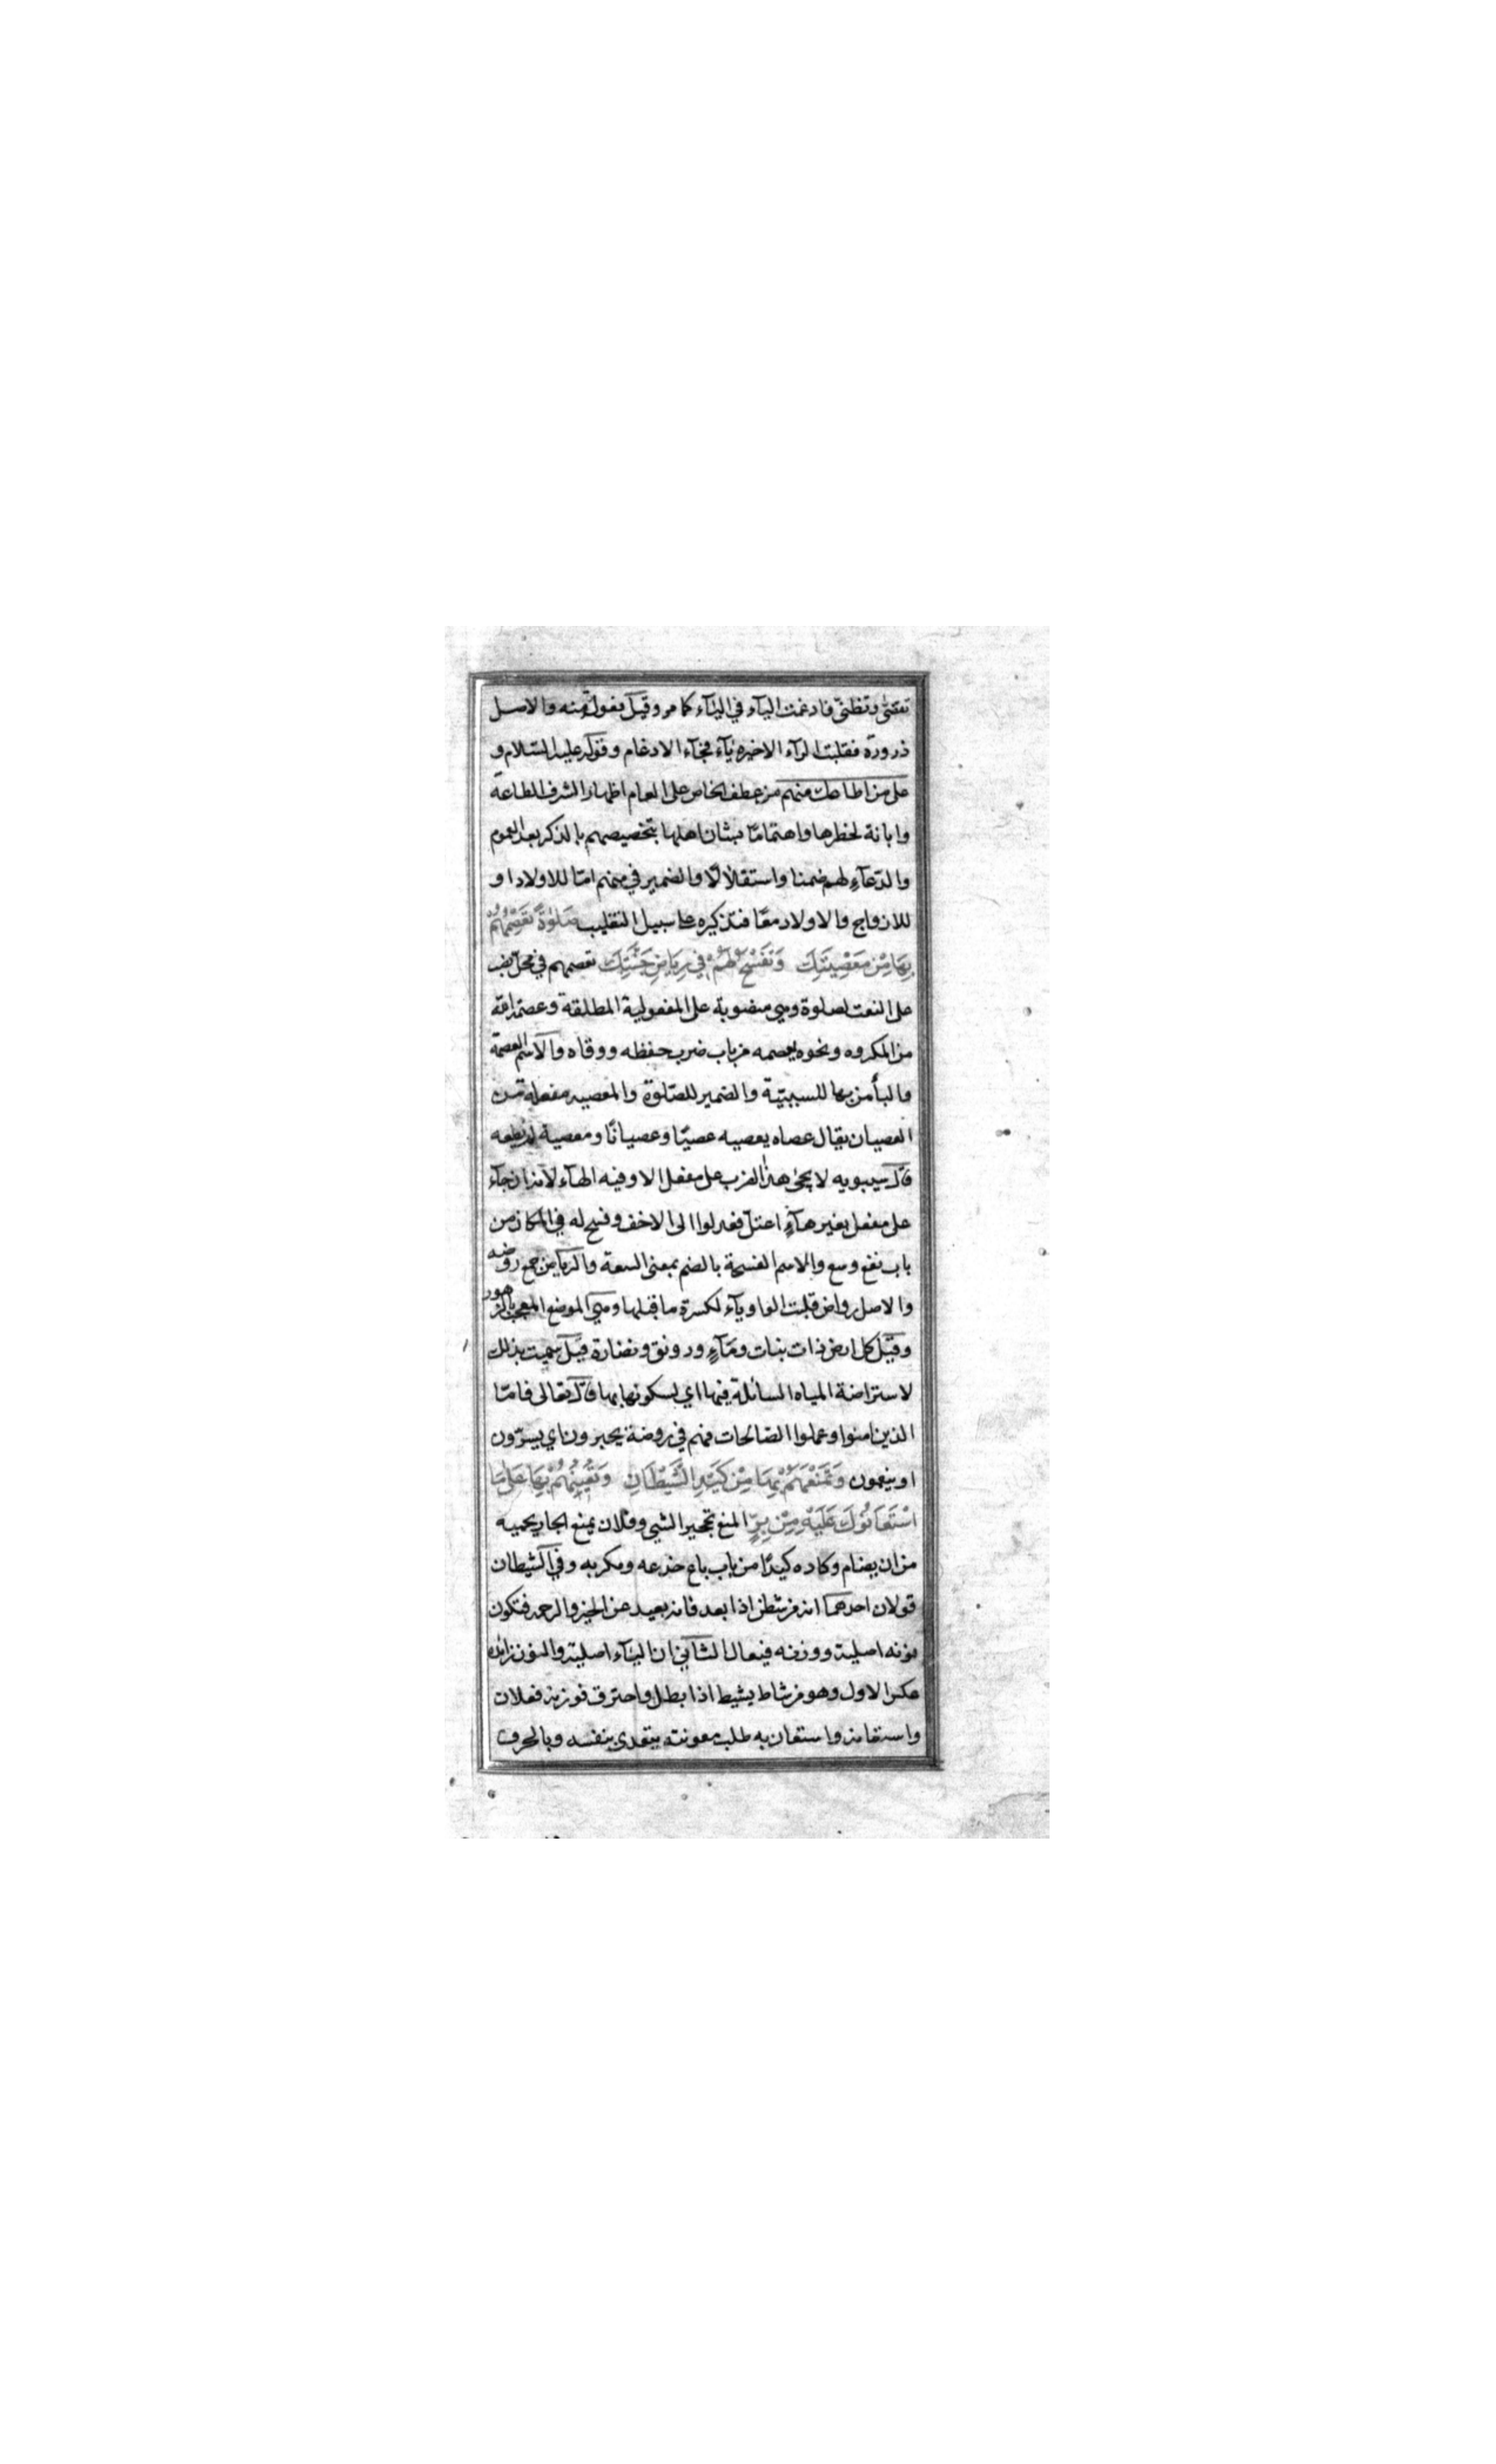 تقضّى وتظنّى فادغمت اليآء في اليآء كما مر وقيل فعولة منه والاصل
ذرورة فقلبت الرآء الاخيره يآء فجآء الادغام وقوله عليه السّلام و
على من اطاعك منهم من عطف الخاص على العام اظهارا لشرف الطاعة
وابانة لخطرها واهتمامًا بشان اهلها بتخصيصهم بالذكر بعد العموم
والدّعآء لهم ضمنا واستقلالًا والضمير في منهم امّا للاولاد او
للازواج والاولاد معًا فتذكيره على سبيل التغليب صَلٰوةً تَعْصِمُهُمْ
بِهَا مِنْ مَعْصِيَتِكَ وَتَفْسَحُ لَهُمْ فِي رِيَاضِ جَنَّتِكَ تعصمهم في محل نصب
على النعت لصلوة وهي منصوبة على المفعولية المطلقة وعصمه الله
من المكروه ونحوه يعصمه من باب ضرب حفظه ووقاه والاسم العصمة
والبأ من بها للسببيّة والضمير للصّلوة والمعصيه مفعلة من
العصيان يقال عصاه يعصيه عصيًا وعصيانًا ومعصية لم يطعه
قال سيبويه لا يجئ هذا الضرب على مفعل الا وفيه الهآء لانه ان جآء
على مفعل بغير هآءٍ اعتلّ فعدلوا الى الاخف وفسح له في المكان من
باب نفع وسع والاسم الفسحة بالضم بمعنى السعة والرياض جمع روضه
والاصل رواض قلبت الواو يآء لكسرة ما قبلها وهي الموضع المعجب بالزهور
وقيل كل ارض ذات نبات ومآءٍ ورونق ونضارة قيل سميت بذلك
لاستراضة المياه السائلة فيها اي لسكونها بها قال تعالى فامّا
الذين امنوا وعملوا الصّالحات فهم في روضة يحبرون اي يسرّون
او ينعمون وَتَمْنَعُهُمْ بِهَا مِنْ كَيْدِ الشَّيْطَانِ وَتُعِينُهُمْ بِهَا عَلٰى مَا
اسْتَعَانُوكَ عَلَيْهِ مِنْ بِرٍّ المنع تحجير الشي وفلان يمنع الجار يحميه
من ان يضام وكاده كيدًا من باب باع خدعه ومكر به وفي الشيطان
قولان احدهما انه من شطن اذا بعد فانه بعيد عن الخير والرحمه فتكون
نونه اصلية ووزنه فيعال الثاني ان اليآء اصلية والنون زائده
عكس الاول وهو من شاط يشيط اذا بطل واحترق فوزنه فعلان
واستعانه واستعان به طلب معونته يتعدى بنفسه وبالحرف